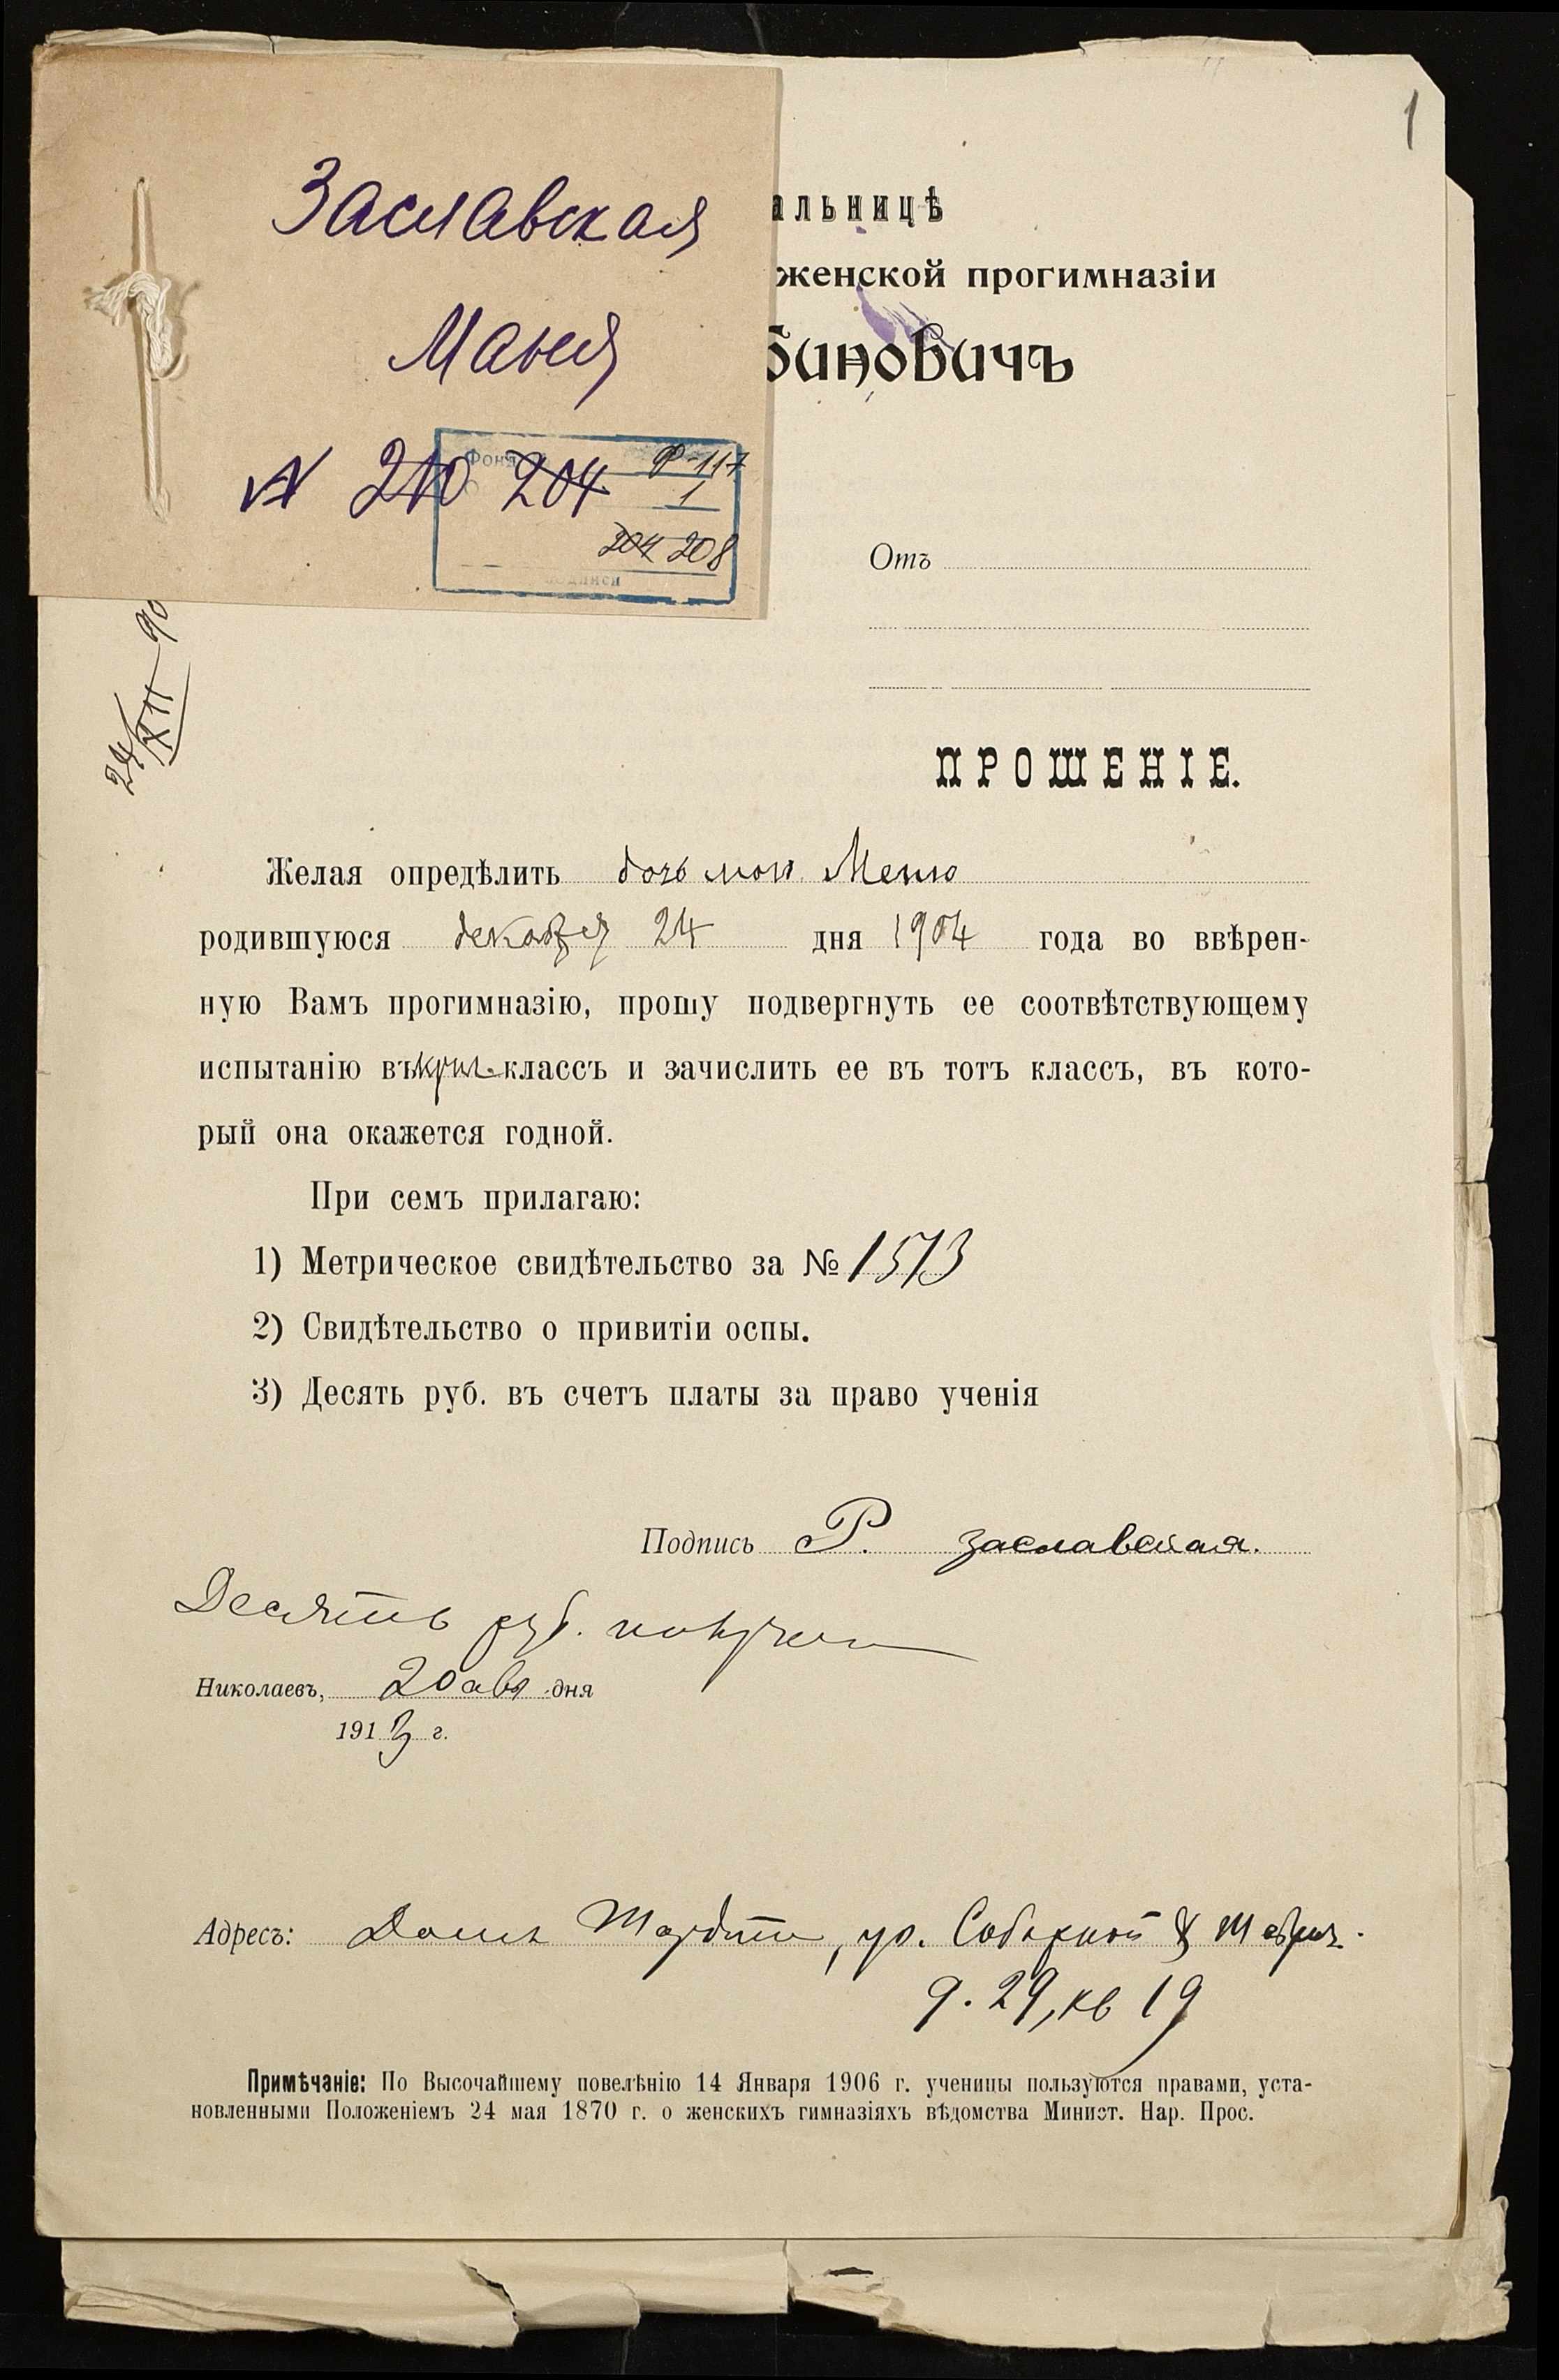 1
Заславская
Маня
N 210 204
Фонд Р-117
1
204 208
альницѣ
женской прогимназіи
биновичъ
Отъ
24/XII 90
ПРОШЕНІЕ.
Желая опредѣлить дочь мою Меню
родившуюся декабря 24 дня 1904 года во ввѣрен-
ную Вамъ прогимназію, прошу подвергнуть ее соотвѣтствующему
испытанію въ классъ и зачислить ее въ тотъ классъ, въ кото-
рый она окажется годной.
При семъ прилагаю:
1) Метрическое свидѣтельство за № 1573
2) Свидѣтельство о привитіи оспы.
3) Десять руб. въ счетъ платы за право ученія
Подпись Р. Заславская.
Десять руб.
Николаевъ, 20 авг дня
1913 г.
Адресъ: Домъ уг. Соборной
д. 29, кв 19
Примѣчаніе: По Высочайшему повелѣнію 14 Января 1906 г. ученицы пользуются правами, уста-
новленными Положеніемъ 24 мая 1870 г. о женскихъ гимназіяхъ вѣдомства Минист. Нар. Прос.